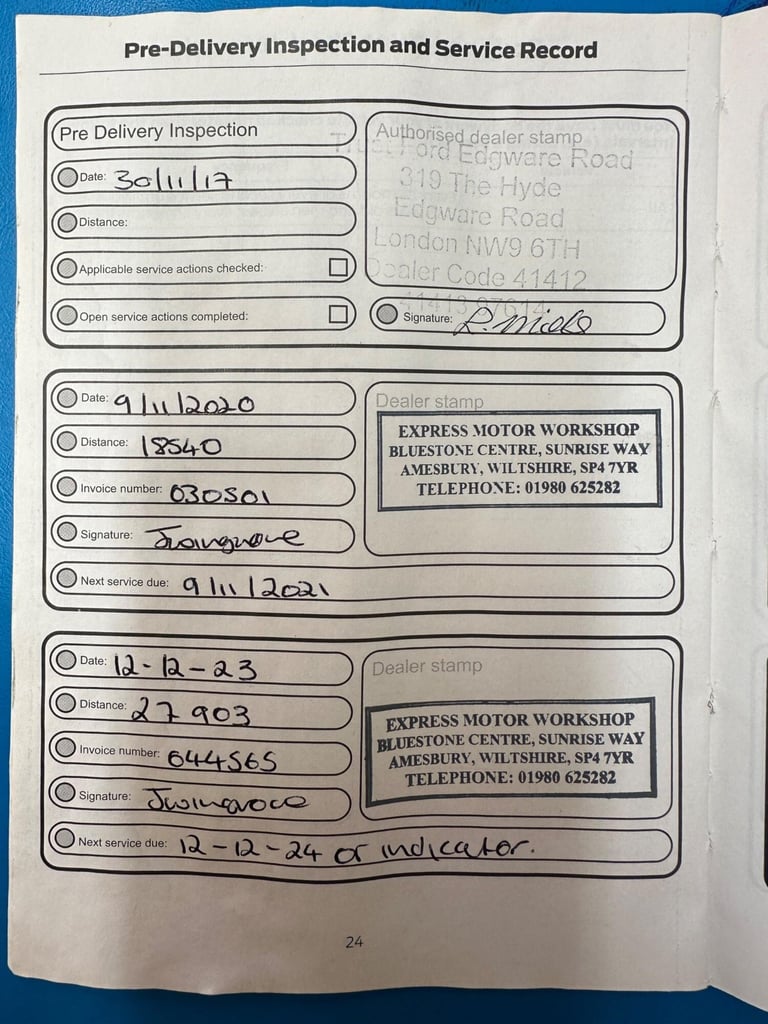 Pre-Delivery Inspection and Service Record
Pre Delivery Inspection
Date: 30/11/17
Distance:
Applicable service actions checked:
Open service actions completed:
Authorised dealer stamp
Trust Ford Edgware Road
319 The Hyde
Edgware Road
London NW9 6TH
Dealer Code 41412
41413 97614
Signature:
Date: 9/11/2020
Distance: 18540
Invoice number: 030501
Signature: Jwingrove
Next service due: 9/11/2021
Dealer stamp
EXPRESS MOTOR WORKSHOP
BLUESTONE CENTRE, SUNRISE WAY
AMESBURY, WILTSHIRE, SP4 7YR
TELEPHONE: 01980 625282
Date: 12-12-23
Distance: 27903
Invoice number: 644565
Signature: Jwingrove
Next service due: 12-12-24 or indicator.
Dealer stamp
EXPRESS MOTOR WORKSHOP
BLUESTONE CENTRE, SUNRISE WAY
AMESBURY, WILTSHIRE, SP4 7YR
TELEPHONE: 01980 625282
24